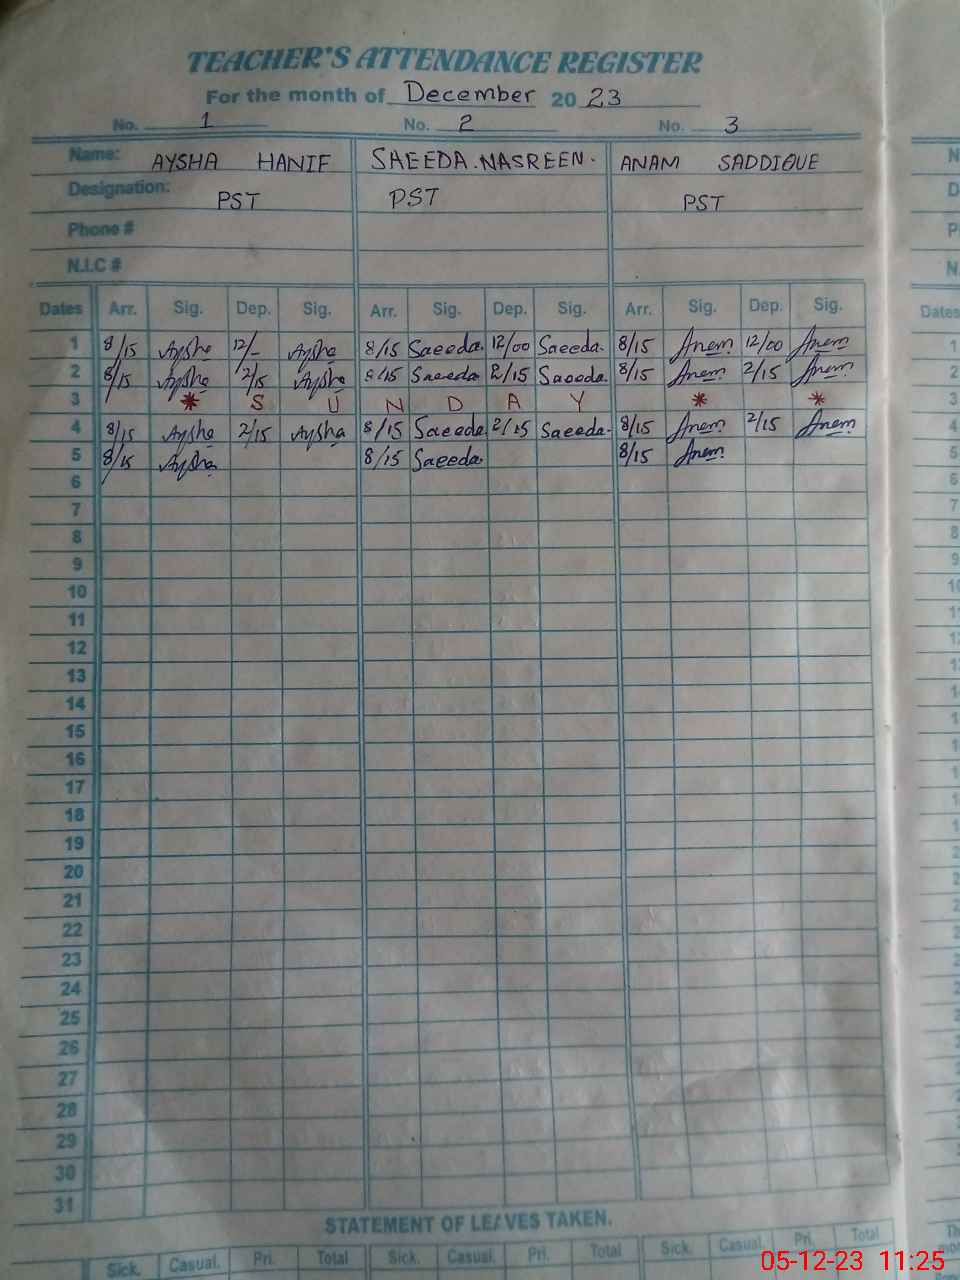 TEACHER'S ATTENDANCE REGISTER
For the month of December 20 23
No. 1 No. 2 No. 3
Name: AYSHA HANIF SAEEDA.NASREEN. ANAM SADDIQUE
Designation: PST PST PST
Phone #
N.I.C #
Dates Arr. Sig. Dep. Sig. Arr. Sig. Dep. Sig. Arr. Sig. Dep. Sig. Dates
1 8/15 Aysha 12/- Aysha 8/15 Saeeda. 12/00 Saeeda. 8/15 Anem 12/00 Anem 1
2 8/15 Aysha 2/15 Aysha 8/15 Saeeda 2/15 Saeeda. 8/15 Anem 2/15 Anem 2
3 * S U N D A Y * * 3
4 8/15 Aysha 2/15 Aysha 8/15 Saeeda 2/15 Saeeda. 8/15 Anem 2/15 Anem 4
5 8/15 Aysha 8/15 Saeeda. 8/15 Anem 5
6
7
8
9
10
11
12
13
14
15
16
17
18
19
20
21
22
23
24
25
26
27
28
29
30
31
STATEMENT OF LEAVES TAKEN.
Sick. Casual. Pri. Total Sick. Casual. Pri. Total Sick. Casual. Pri. Total
05-12-23 11:25